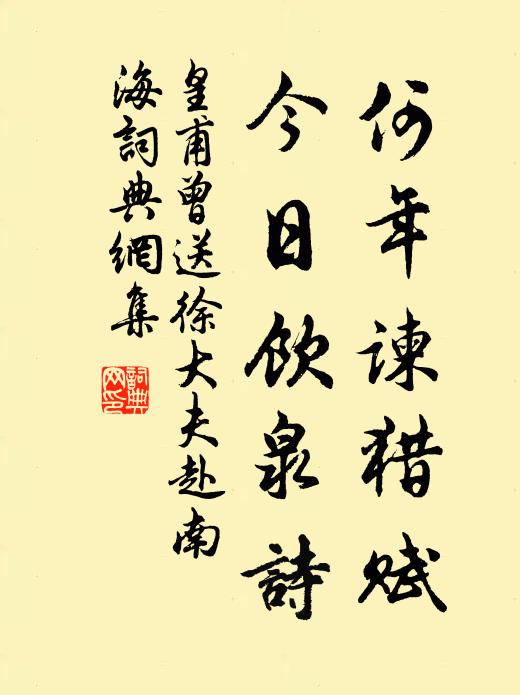 何年谏猎赋
今日饮泉詩
皇甫曾送徐大夫赴南
海詞典網集
詞典
网印